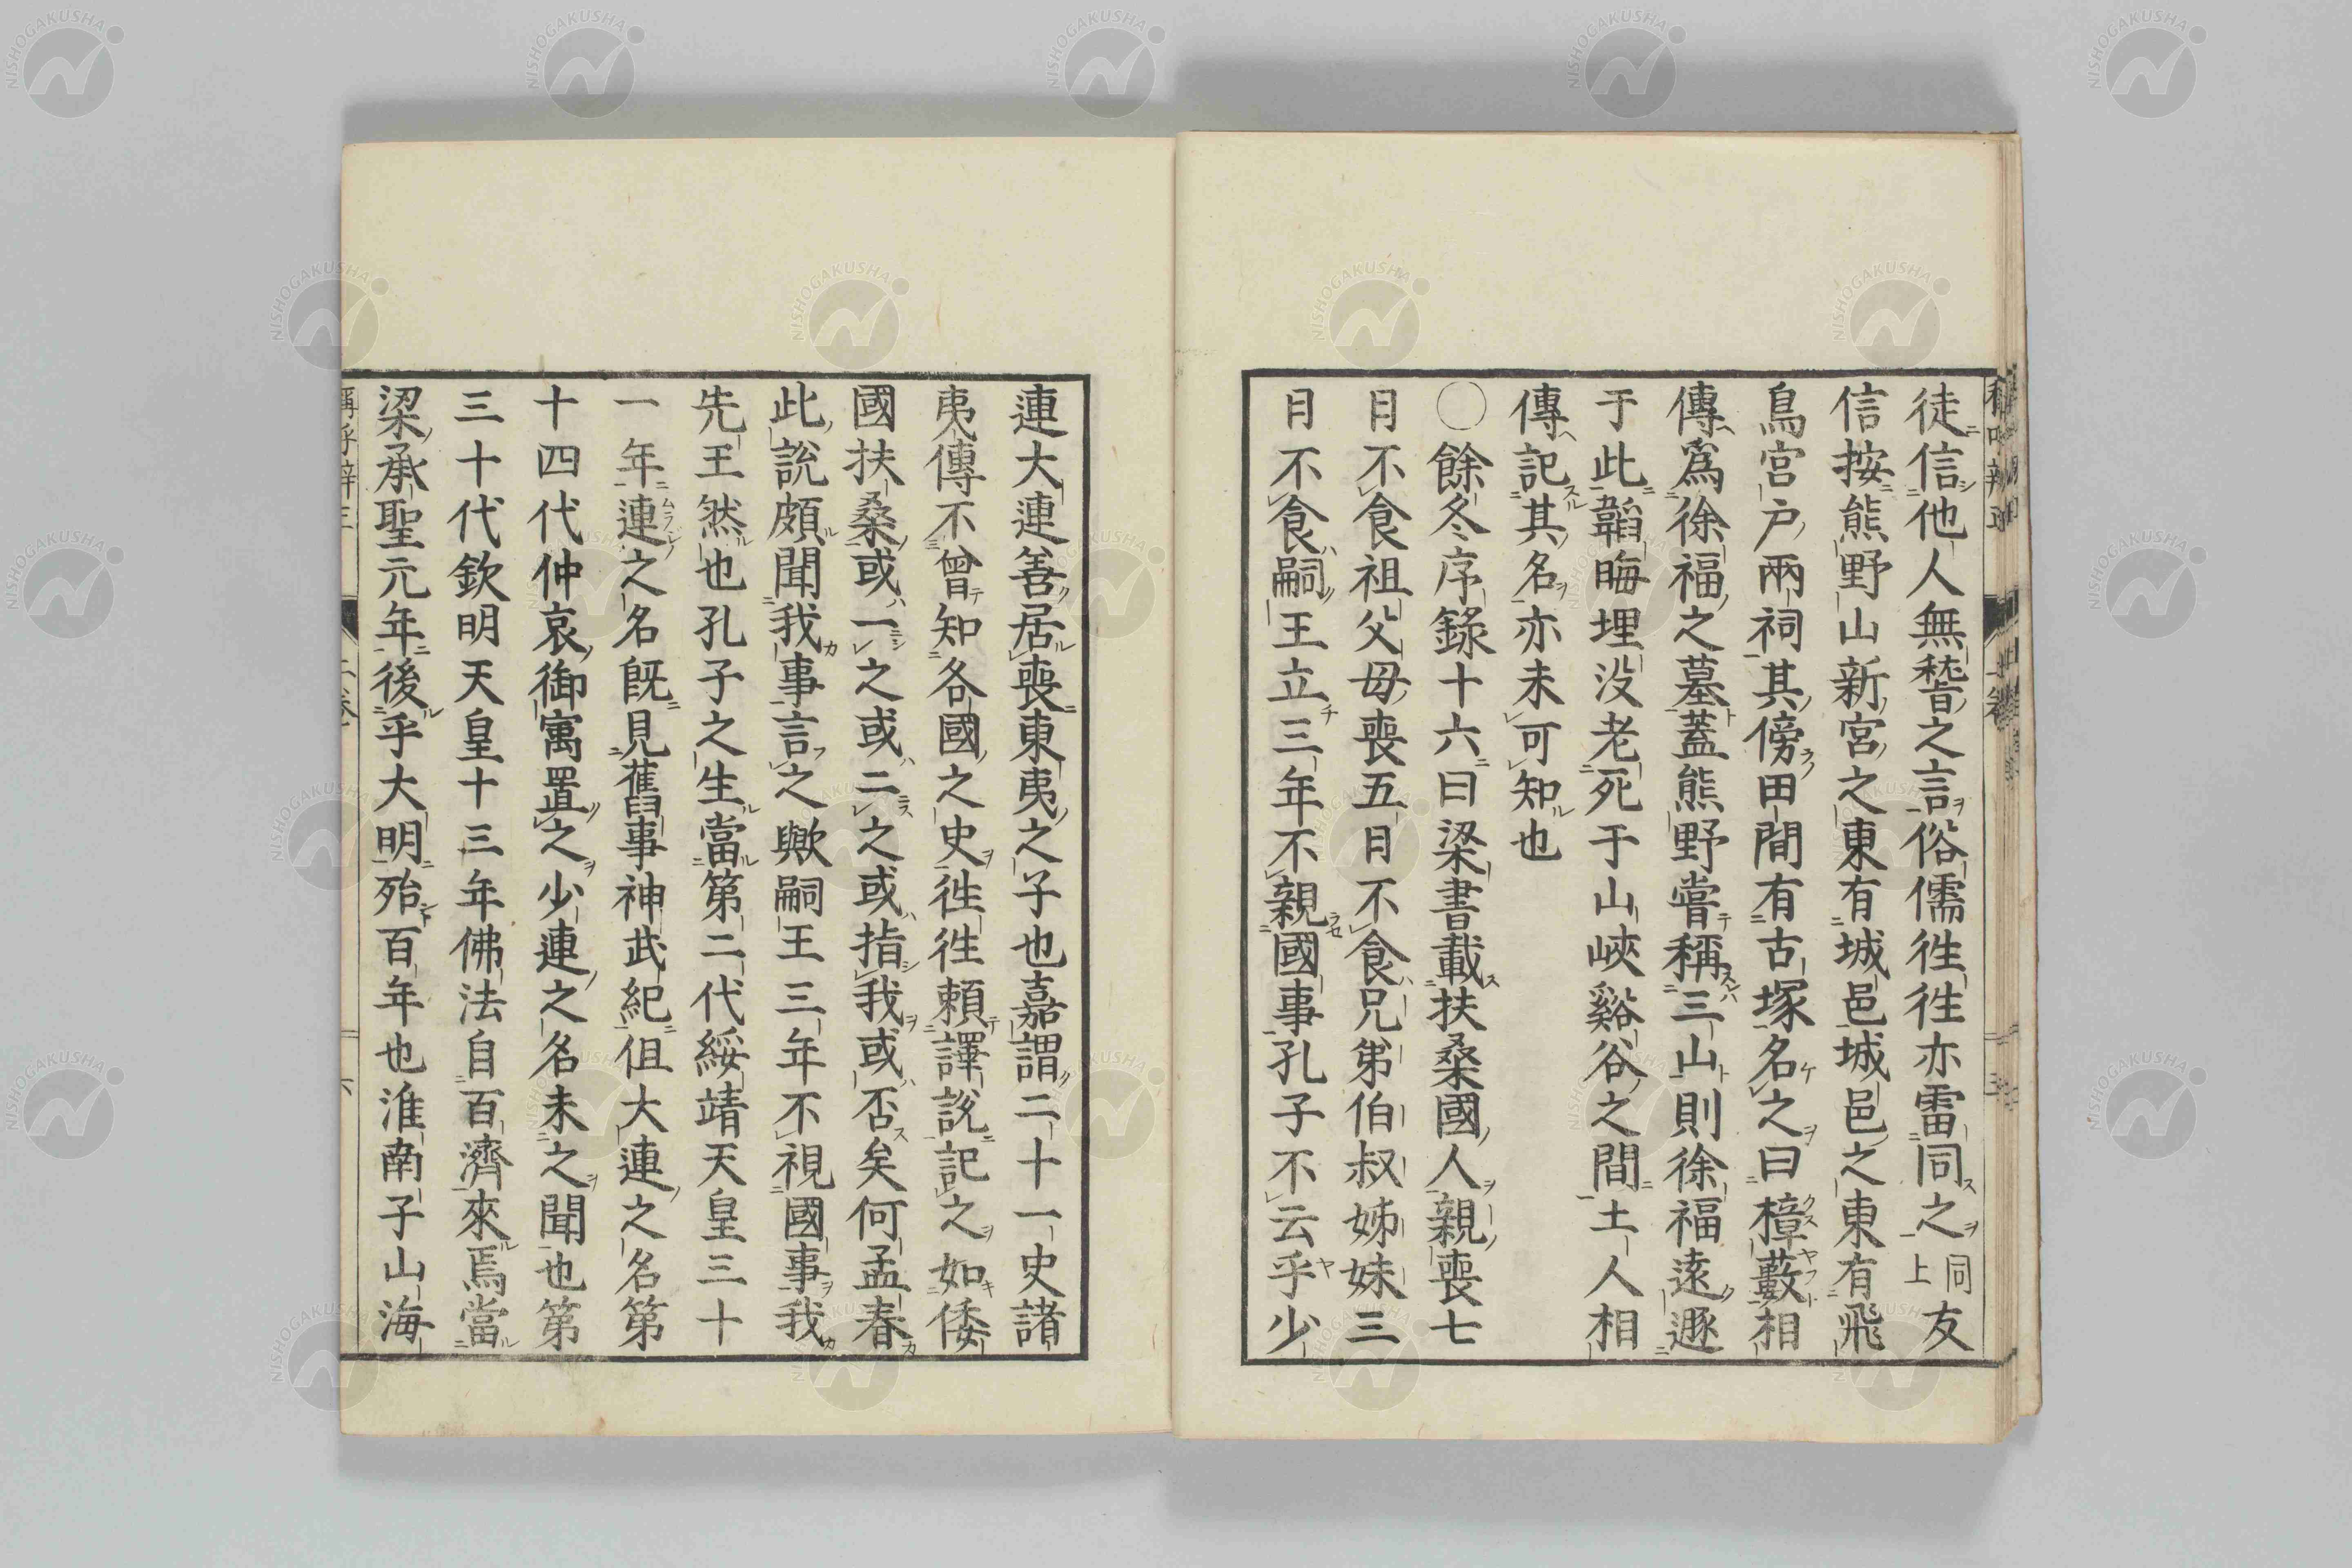 徒信他人無稽之言俗儒徃徃亦雷同之同上友
信按熊野山新宮之東有城邑城邑之東有飛
鳥宮戸兩祠其傍田間有古塚名之曰樟藪相
傳爲徐福之墓蓋熊野嘗稱三山則徐福遠遯
于此韜晦埋没老死于山峽谿谷之間土人相
傳記其名亦未可知也
○餘冬序錄十六曰梁書載扶桑國人親喪七
日不食祖父母喪五日不食兄弟伯叔姊妹三
日不食嗣王立三年不親國事孔子不云乎少
連大連善居喪東夷之子也嘉謂二十一史諸
夷傳不曾知各國之史徃徃頼譯說記之如倭
國扶桑或一之或二之或指我或否矣何孟春
此說頗聞我事言之歟嗣王三年不視國事我
先王然也孔子之生當第二代綏靖天皇三十
一年連之名既見舊事神武紀但大連之名第
十四代仲哀御寓置之少連之名未之聞也第
三十代欽明天皇十三年佛法自百濟來焉當
梁承聖元年後乎大明殆百年也淮南子山海
NISHOGAKUSHA